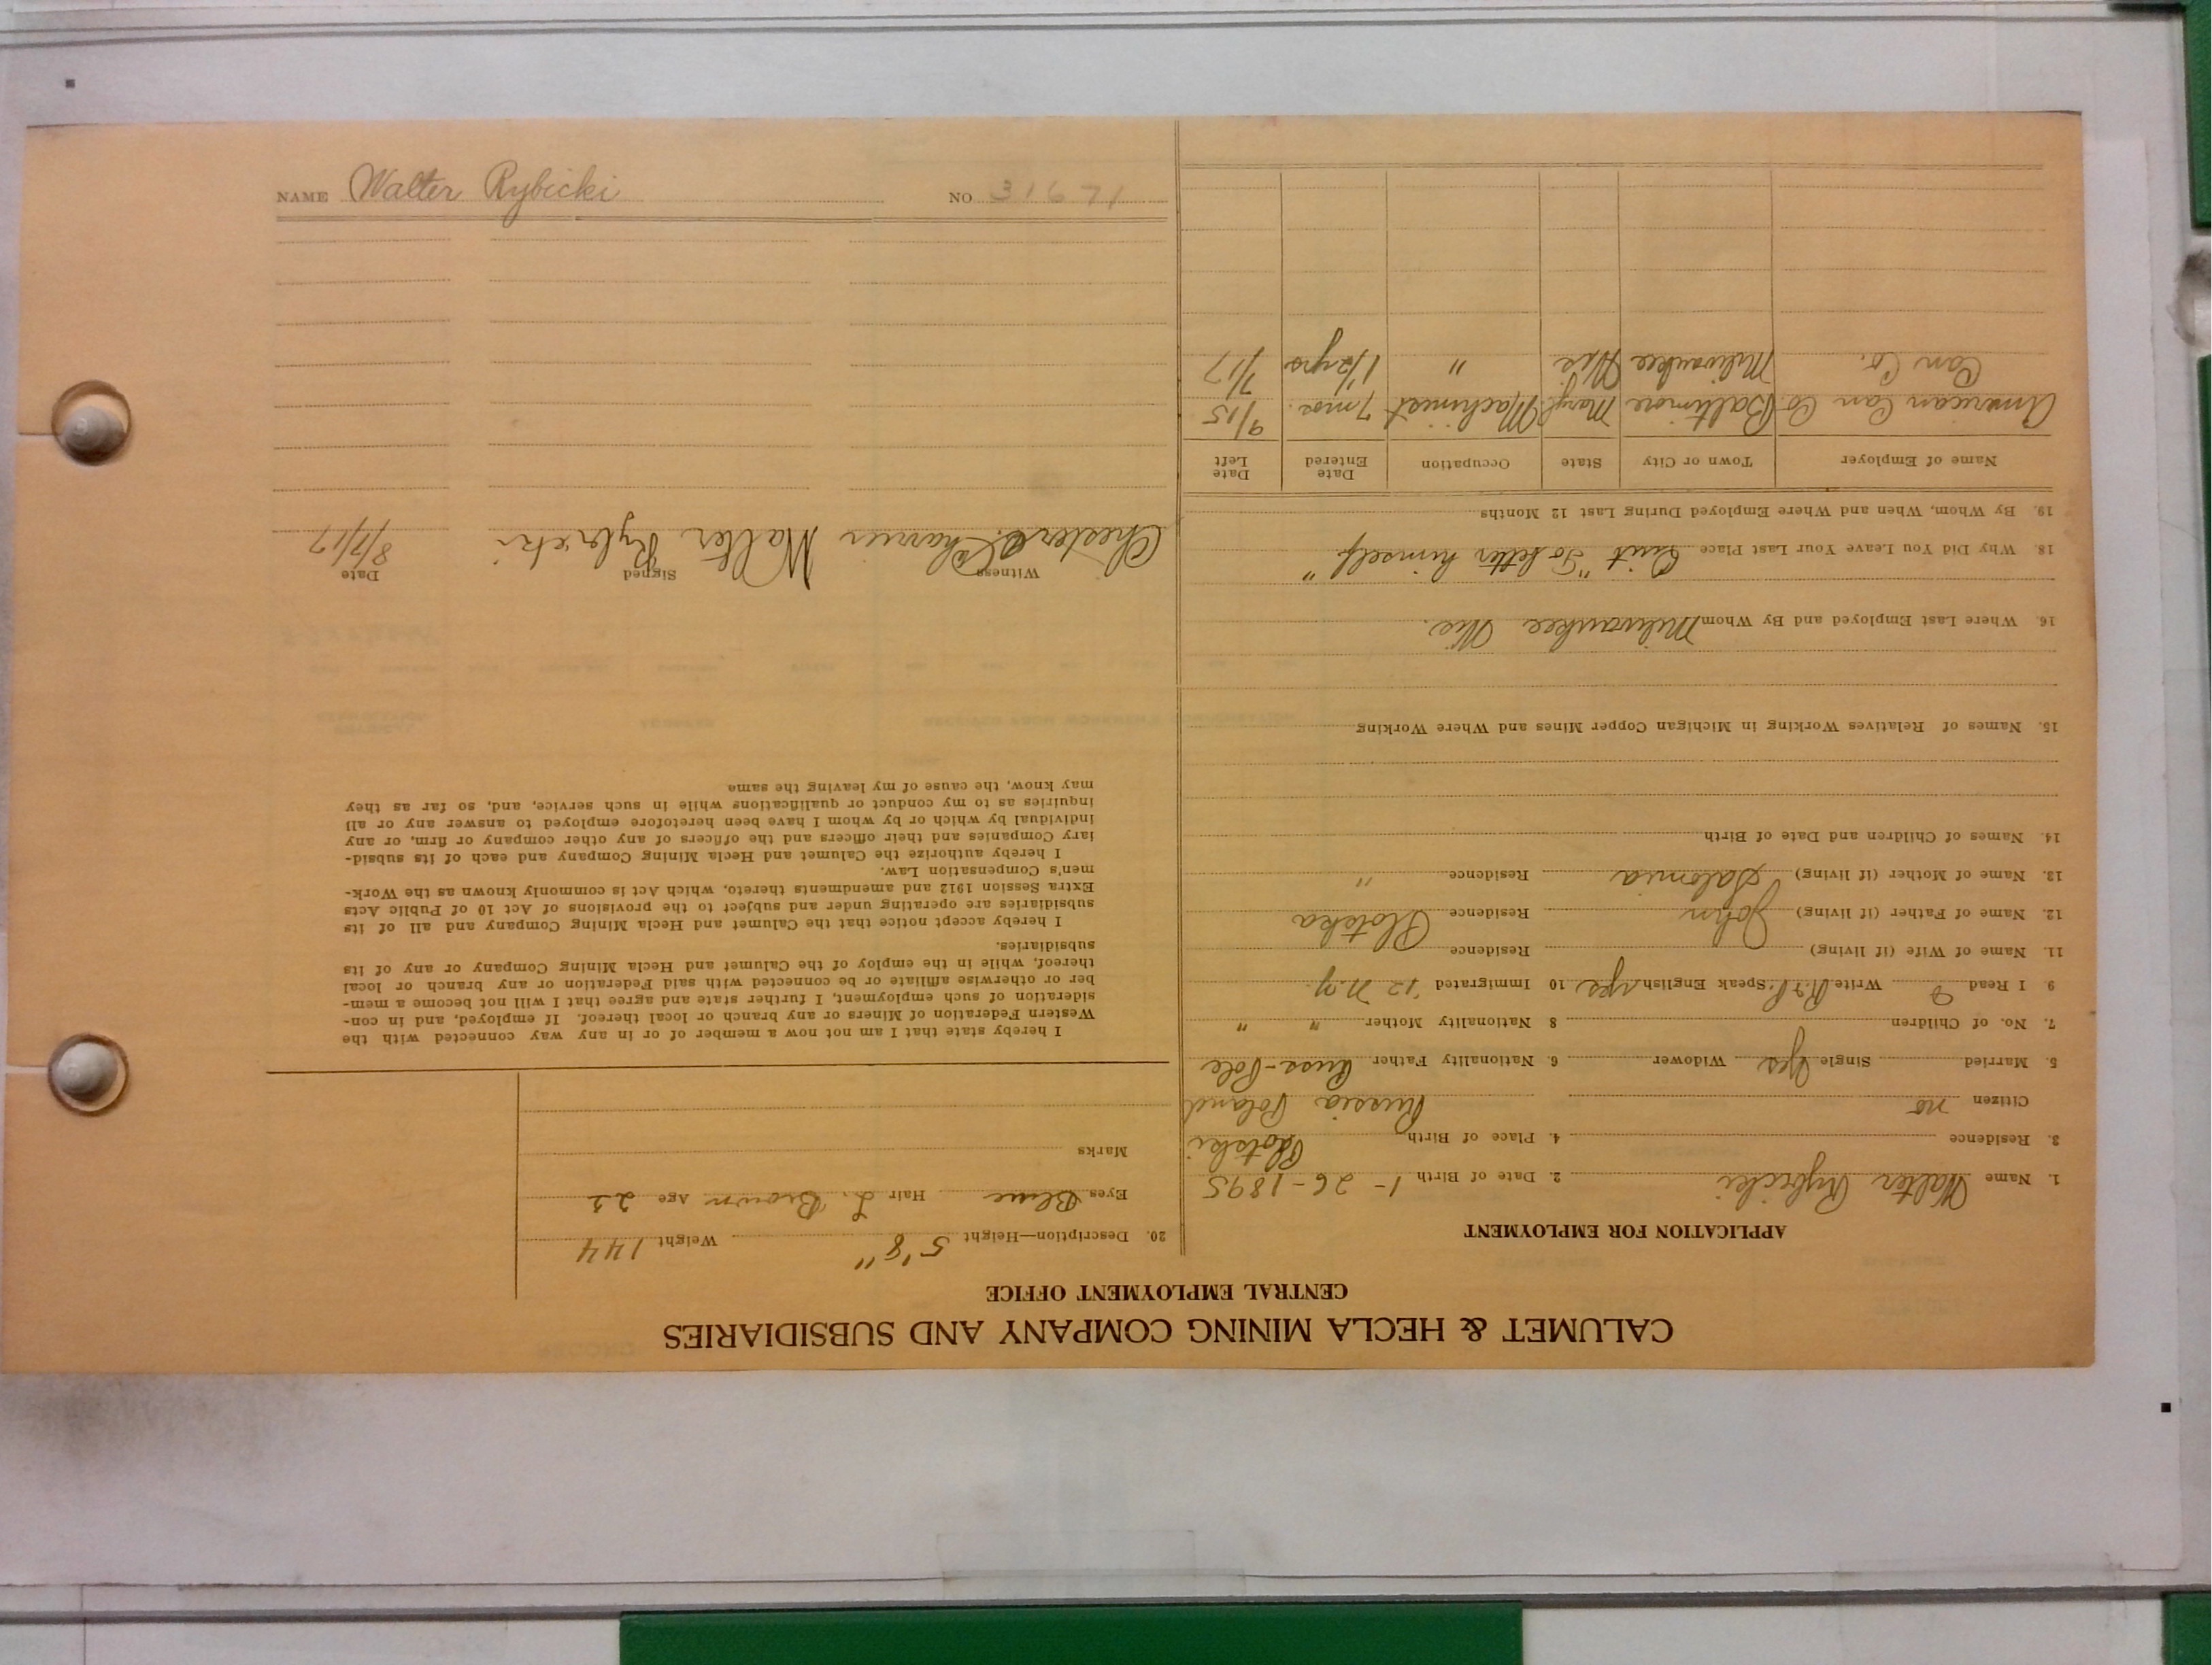 CALUMET & HECLA MINING COMPANY AND SUBSIDIARIES
CENTRAL EMPLOYMENT OFFICE
APPLICATION FOR EMPLOYMENT
1. Name Walter Rybicki 2. Date of Birth 1-26-1895
3. Residence 4. Place of Birth Plotski
Citizen no Russia Poland
5. Married Single yes Widower 6. Nationality Father Russ-Pole
7. No. of Children 8 Nationality Mother " "
9. I Read Write R.&P. Speak English yes 10 Immigrated '12 N.Y.
11. Name of Wife (if living) Residence
12. Name of Father (if living) John Residence Plotska
13. Name of Mother (if living) Salomia Residence "
14. Names of Children and Date of Birth
15. Names of Relatives Working in Michigan Copper Mines and Where Working
16. Where Last Employed and By Whom Milwaukee Wis.
18. Why Did You Leave Your Last Place Quit "To better himself"
19. By Whom, When and Where Employed During Last 12 Months
Name of Employer Town or City State Occupation Date Entered Date Left
American Can Co. Baltimore Mary. Machinist 7 mos. 9/15
Can Co. Milwaukee Wis. " 1 1/2 yrs 7/17
20. Description—Height 5'8" Weight 144
Eyes Blue Hair L. Brown Age 22
Marks
I hereby state that I am not now a member of or in any way connected with the
Western Federation of Miners or any branch or local thereof. If employed, and in con-
sideration of such employment, I further state and agree that I will not become a mem-
ber or otherwise affiliate or be connected with said Federation or any branch or local
thereof, while in the employ of the Calumet and Hecla Mining Company or any of its
subsidiaries.
I hereby accept notice that the Calumet and Hecla Mining Company and all of its
subsidiaries are operating under and subject to the provisions of Act 10 of Public Acts
Extra Session 1912 and amendments thereto, which Act is commonly known as the Work-
men's Compensation Law.
I hereby authorize the Calumet and Hecla Mining Company and each of its subsid-
iary Companies and their officers and the officers of any other company or firm, or any
individual by which or by whom I have been heretofore employed to answer any or all
inquiries as to my conduct or qualifications while in such service, and, so far as they
may know, the cause of my leaving the same
Witness Signed Date
Chester Walter Rybicki 8/7/17
NAME Walter Rybicki NO 31671